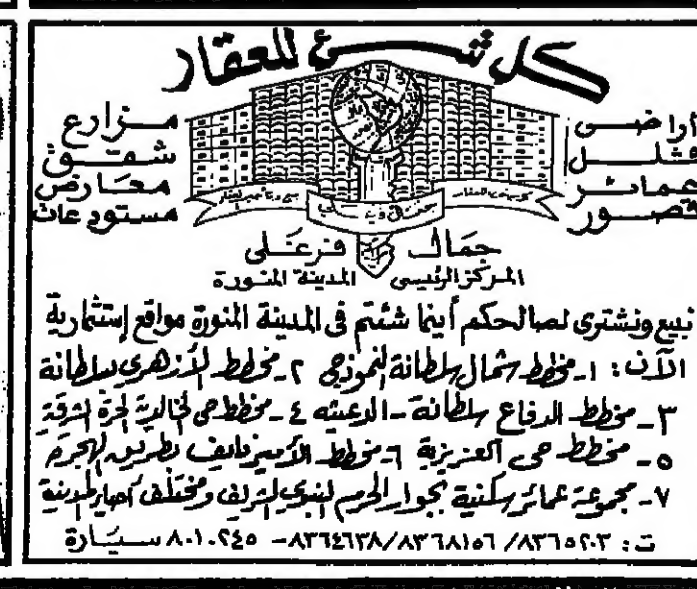 كل شئ للعقار
أراضى
فلل
عمائر
قصور
مزارع
شقق
معارض
مستودعات
جمال فرغلى
المركز الرئيسى المدينة المنورة
نبيع ونشترى لصالحكم أينما شئتم فى المدينة المنورة مواقع إستثمارية
الآن : ١ـ مخطط شمال سلطانة النموذجى ٢ـ مخطط الأزهري سلطانة
٣ـ مخطط الدفاع سلطانة - الدعيثه ٤ـ مخطط حى الخالدية الحرة الشرقية
٥ـ مخطط حى العزيزية ٦ـ مخطط الأمير نايف بطريق الهجرة
٧ـ مجموعة عمائر سكنية بجوار الحرم النبوى الشريف ومختلف أحياء المدينة
ت : ٨٣٦٥٢٠٣ / ٨٣٦٨١٥٦ / ٨٣٦٤٦٣٨ - ٨٠١٠٢٤٥ سيارة